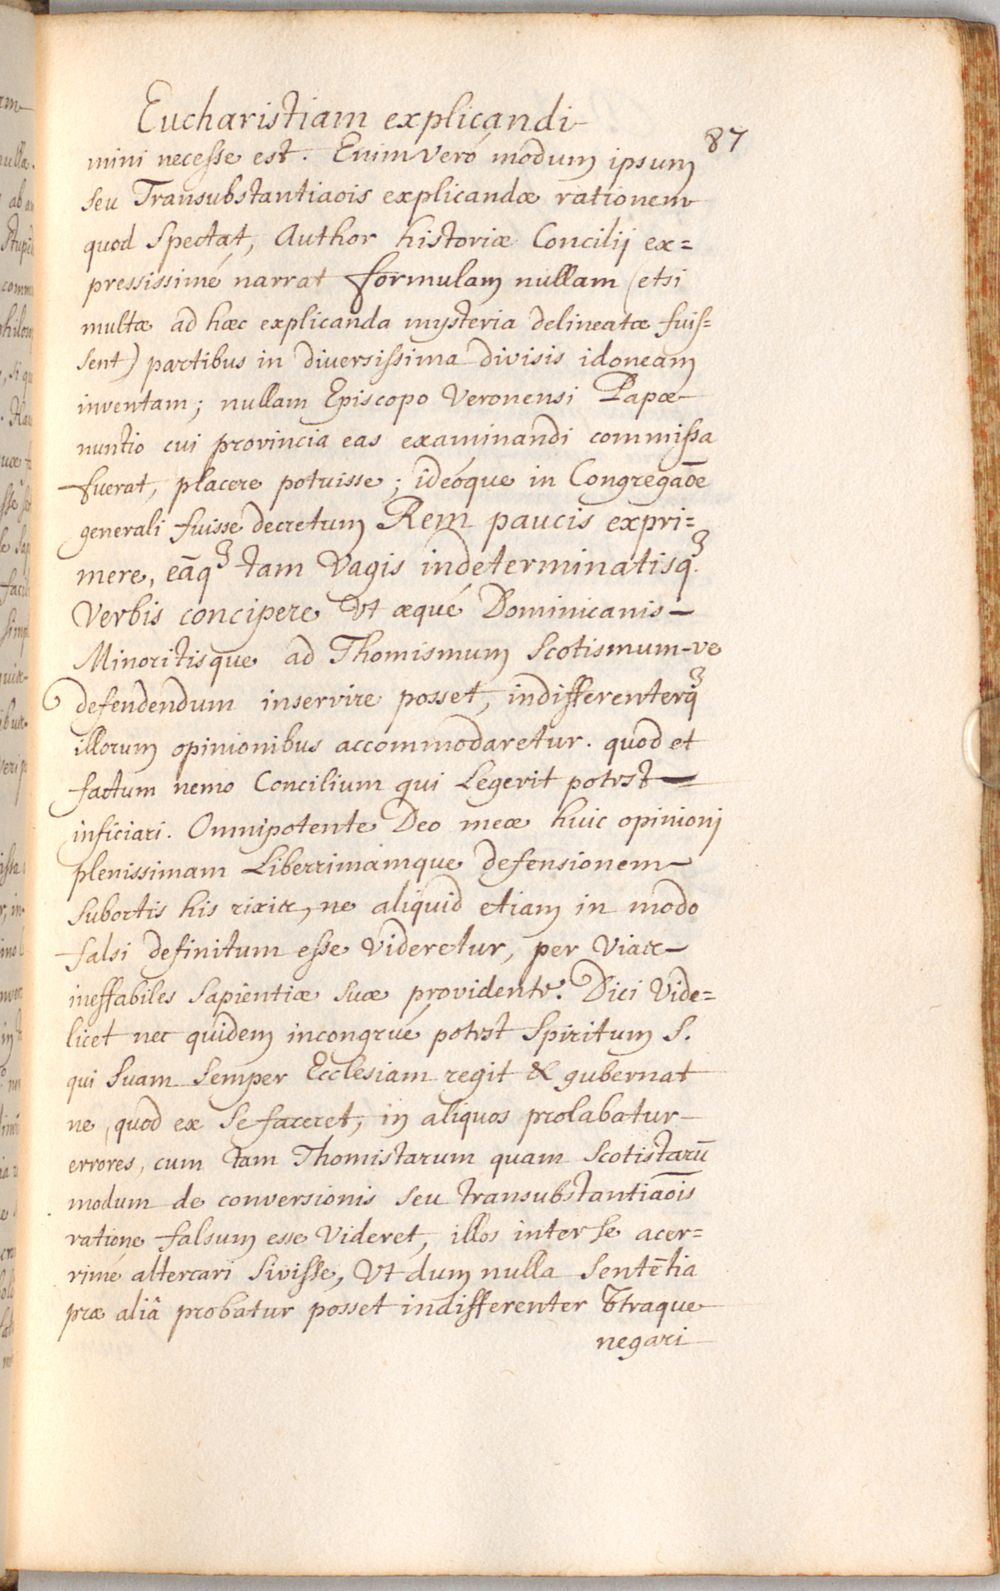 Eucharistiam explicandi
87
mini necesse est. Enimveró modum ipsum
seu Transubstantiaōis explicandæ rationem
quod spectat, Author historiæ Concilij ex=
pressissimé narrat formulam nullam (etsi
multæ ad hæc explicanda mysteria delineatæ fuis=
sent) partibus in diversissima divisis idoneam
inventam; nullam Episcopo Veronensi Papæ
nuntio cui provincia eas examinandi commissa
fuerat, placere potuisse; ideóque in Congregaōe
generali fuisse decretum Rem paucis expri=
mere, eāqꝫ tam vagis indeterminatisqꝫ
verbis concipere ut æqué Dominicanis
Minoritisque ad Thomismum Scotismum-ve
defendendum inservire posset, indifferenterqꝫ
illorum opinionibus accommodaretur. quod et
factum nemo Concilium qui Legerit potest
inficiari. Omnipotente Deo meæ huic opinioni
plenissimam Liberrimamque defensionem
subortis his rixis, ne aliquid etiam in modo
falsi definitum esse videretur, per vias
ineffabiles sapientiæ suæ providente. Dici vide=
licet nec quidem incongrué potest Spiritum S.
qui suam semper Ecclesiam regit & gubernat
ne, quod ex se faceret, in aliquos prolabatur
errores, cum tam Thomistarum quam Scotistarū
modum de conversionis seu transubstantiaōis
ratione falsum esse videret, illos inter se acer=
rimé altercari sivisse, ut dum nulla sentētia
præ aliâ probatur posset indifferenter utraque
negari